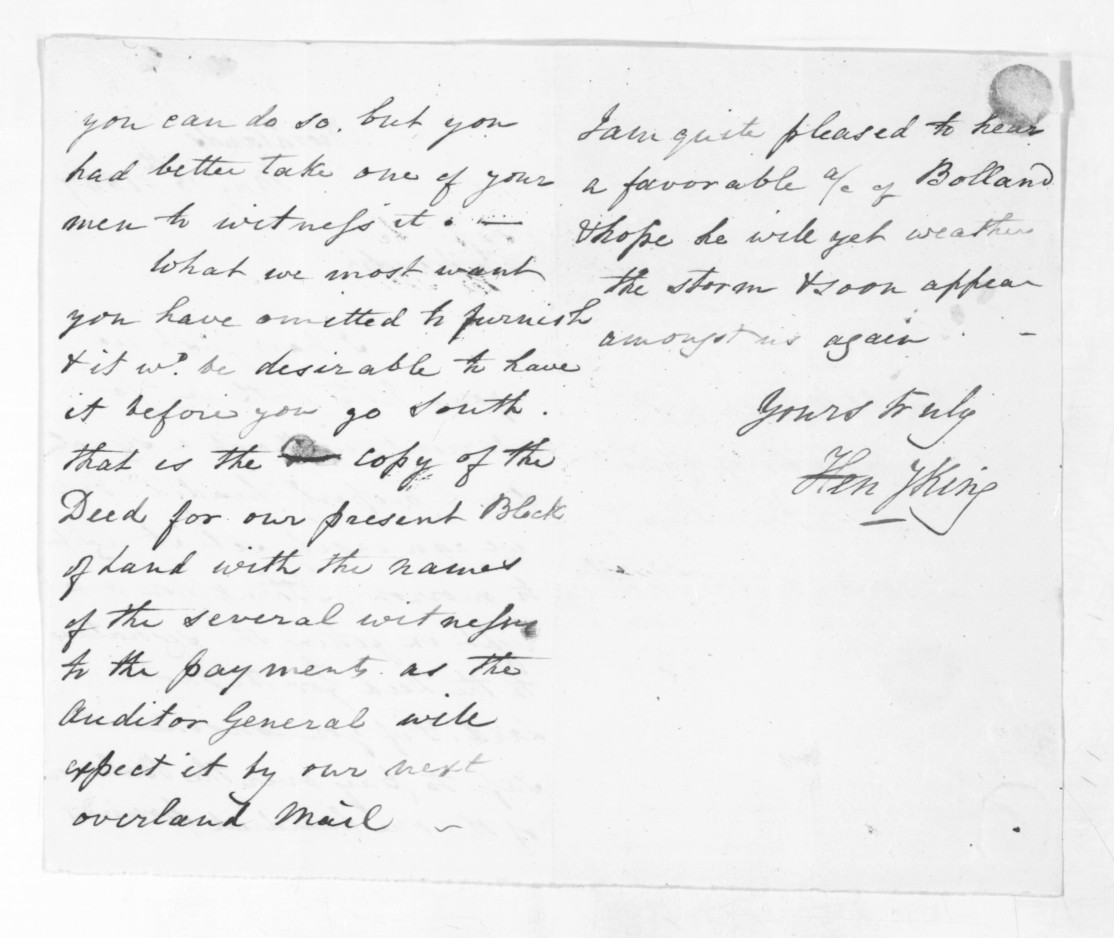 you can do so. but you
had better take one of your
men to witness it. —
What we most want
you have omitted to furnish
& it wd. be desirable to have
it before you go South.
that is the copy of the
Deed for our present Block
of Land with the names
of the several witnesses
to the payments as the
Auditor General will
expect it by our next
overland Mail ~
I am quite pleased to hear
a favorable a/c of Bolland
& hope he will yet weather
the storm & soon appear
amongst us again —
Yours truly
Hen J King